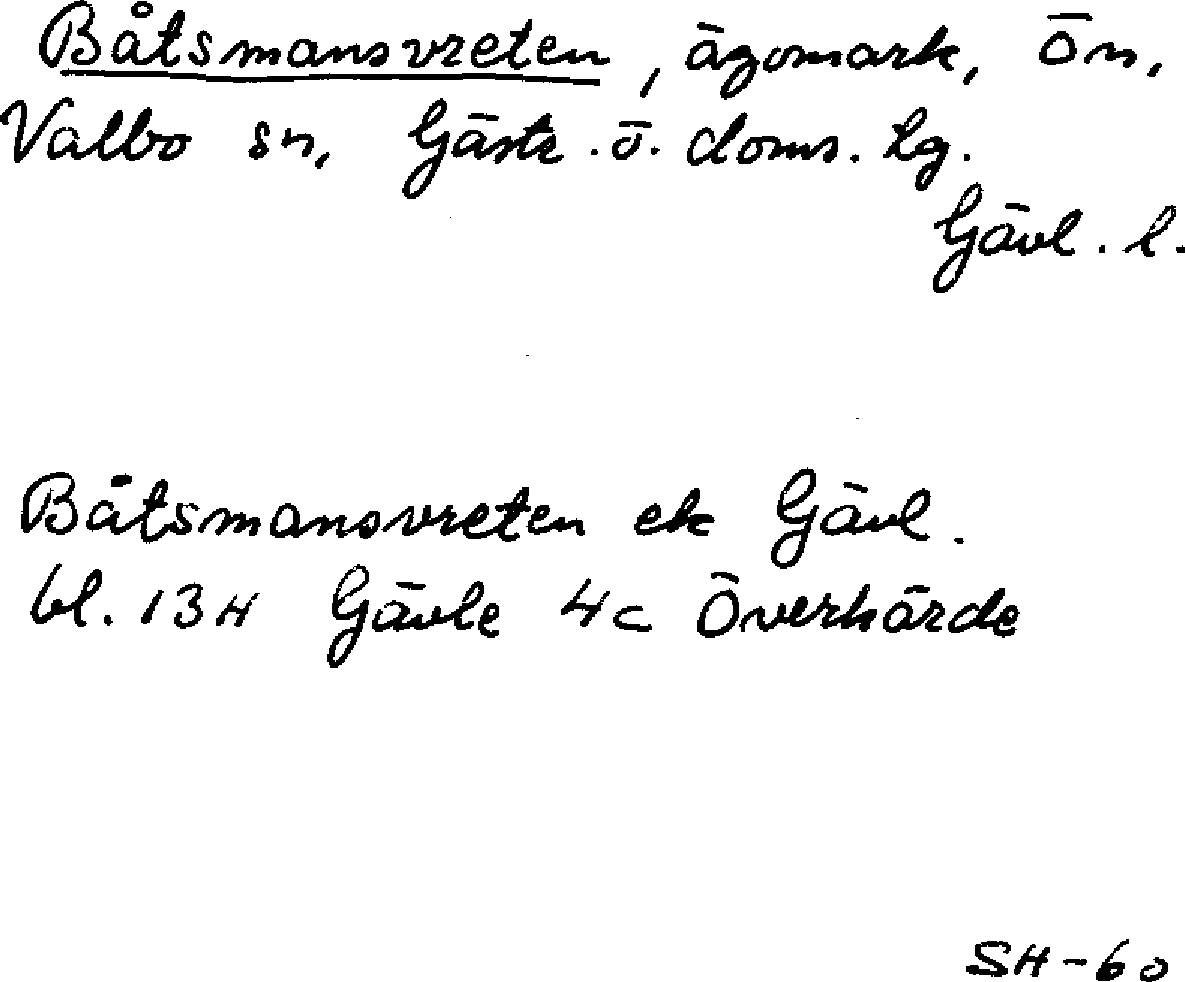 Båtsmansvreten, ägomark, Ön,
Valbo sn, Gästr. ö. doms. lg.
Gävl. l.
Båtsmansvreten ek Gävl.
bl. 13H Gävle 4c Överhärde
SH-60